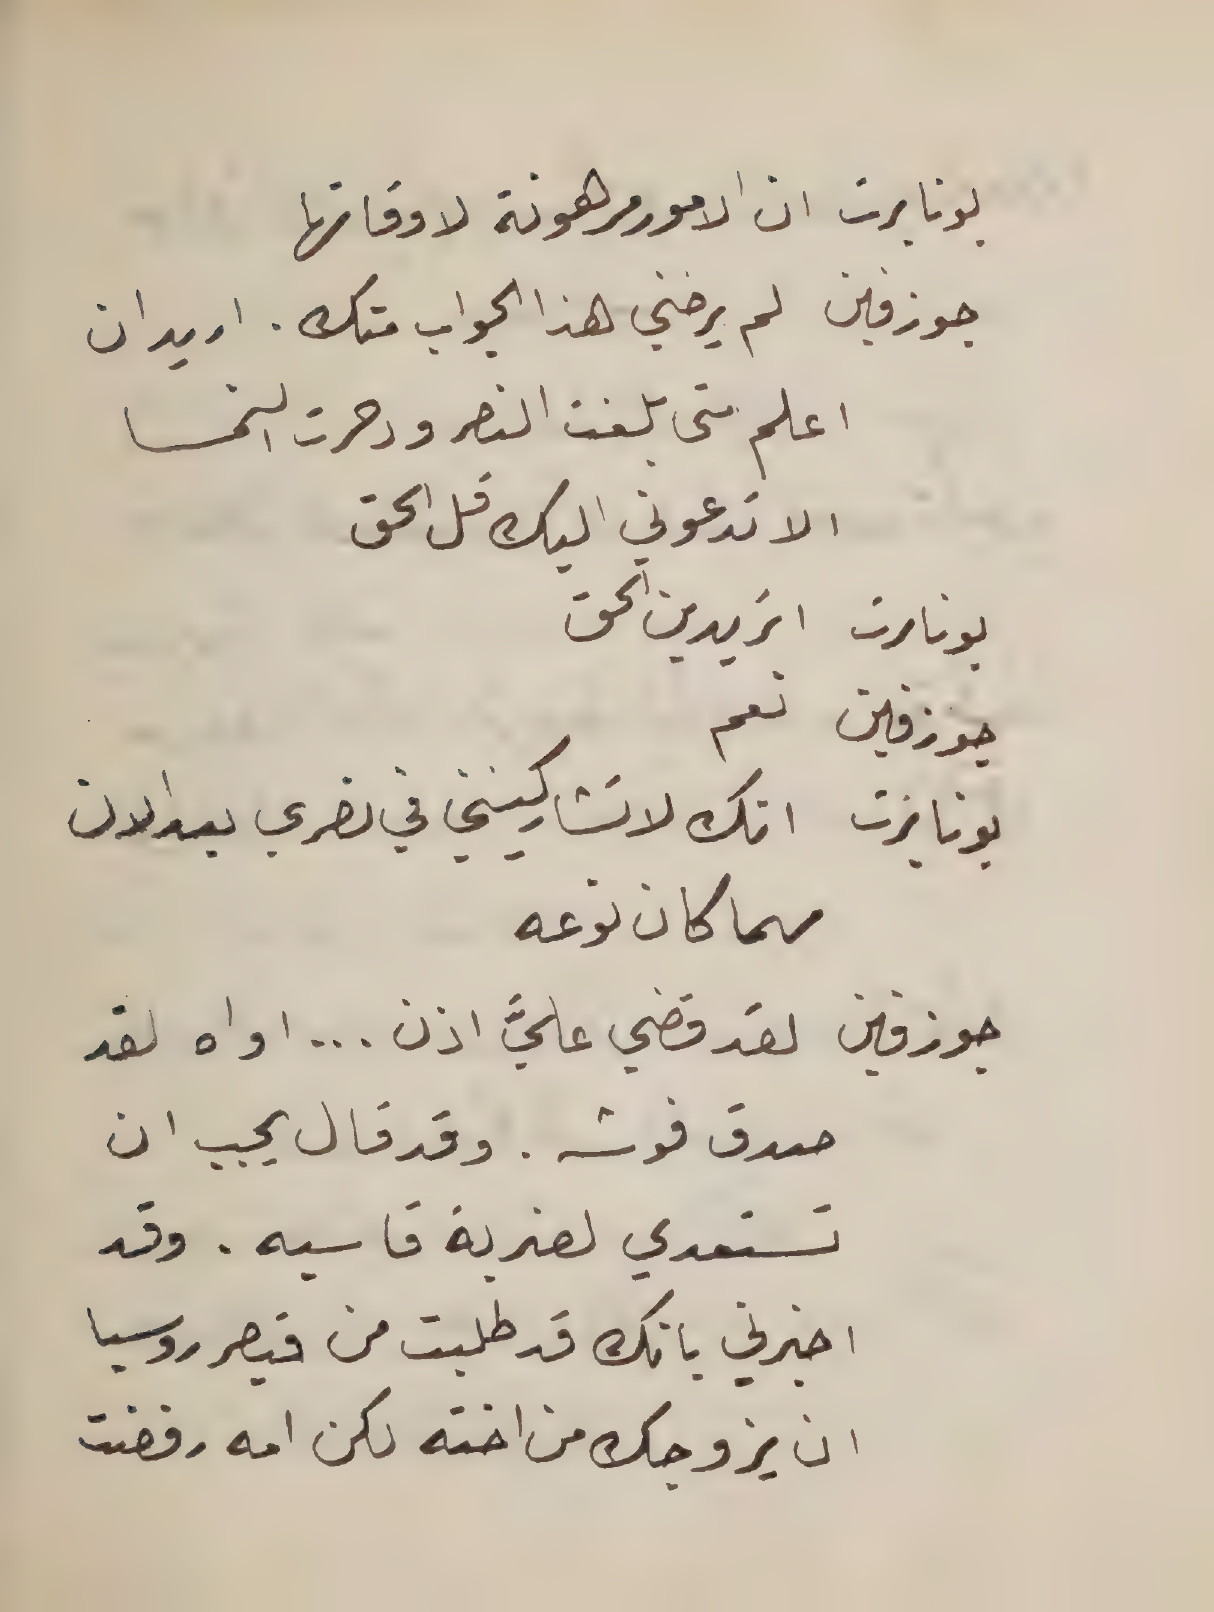 بونابرت ان الامور مرهونة لاوقاتها
جوزفين لم يرضني هذا الجواب منك . اريد ان
اعلم متى بلغت النصر ودحرت النمسا
الا تدعوني اليك قل الحق
بونابرت اتريدين الحق
جوزفين نعم
بونابرت انك لا تشاركينني في نصري بعد الان
مهما كان نوعه
جوزفين لقد قضي عليَّ اذن ... اواه لقد
صدق فوشه . وقد قال يجب ان
تستعدي لضربة قاسيه . وقد
اخبرني بانك قد طلبت من قيصر روسيا
ان يزوجك من اخته لكن امه رفضت